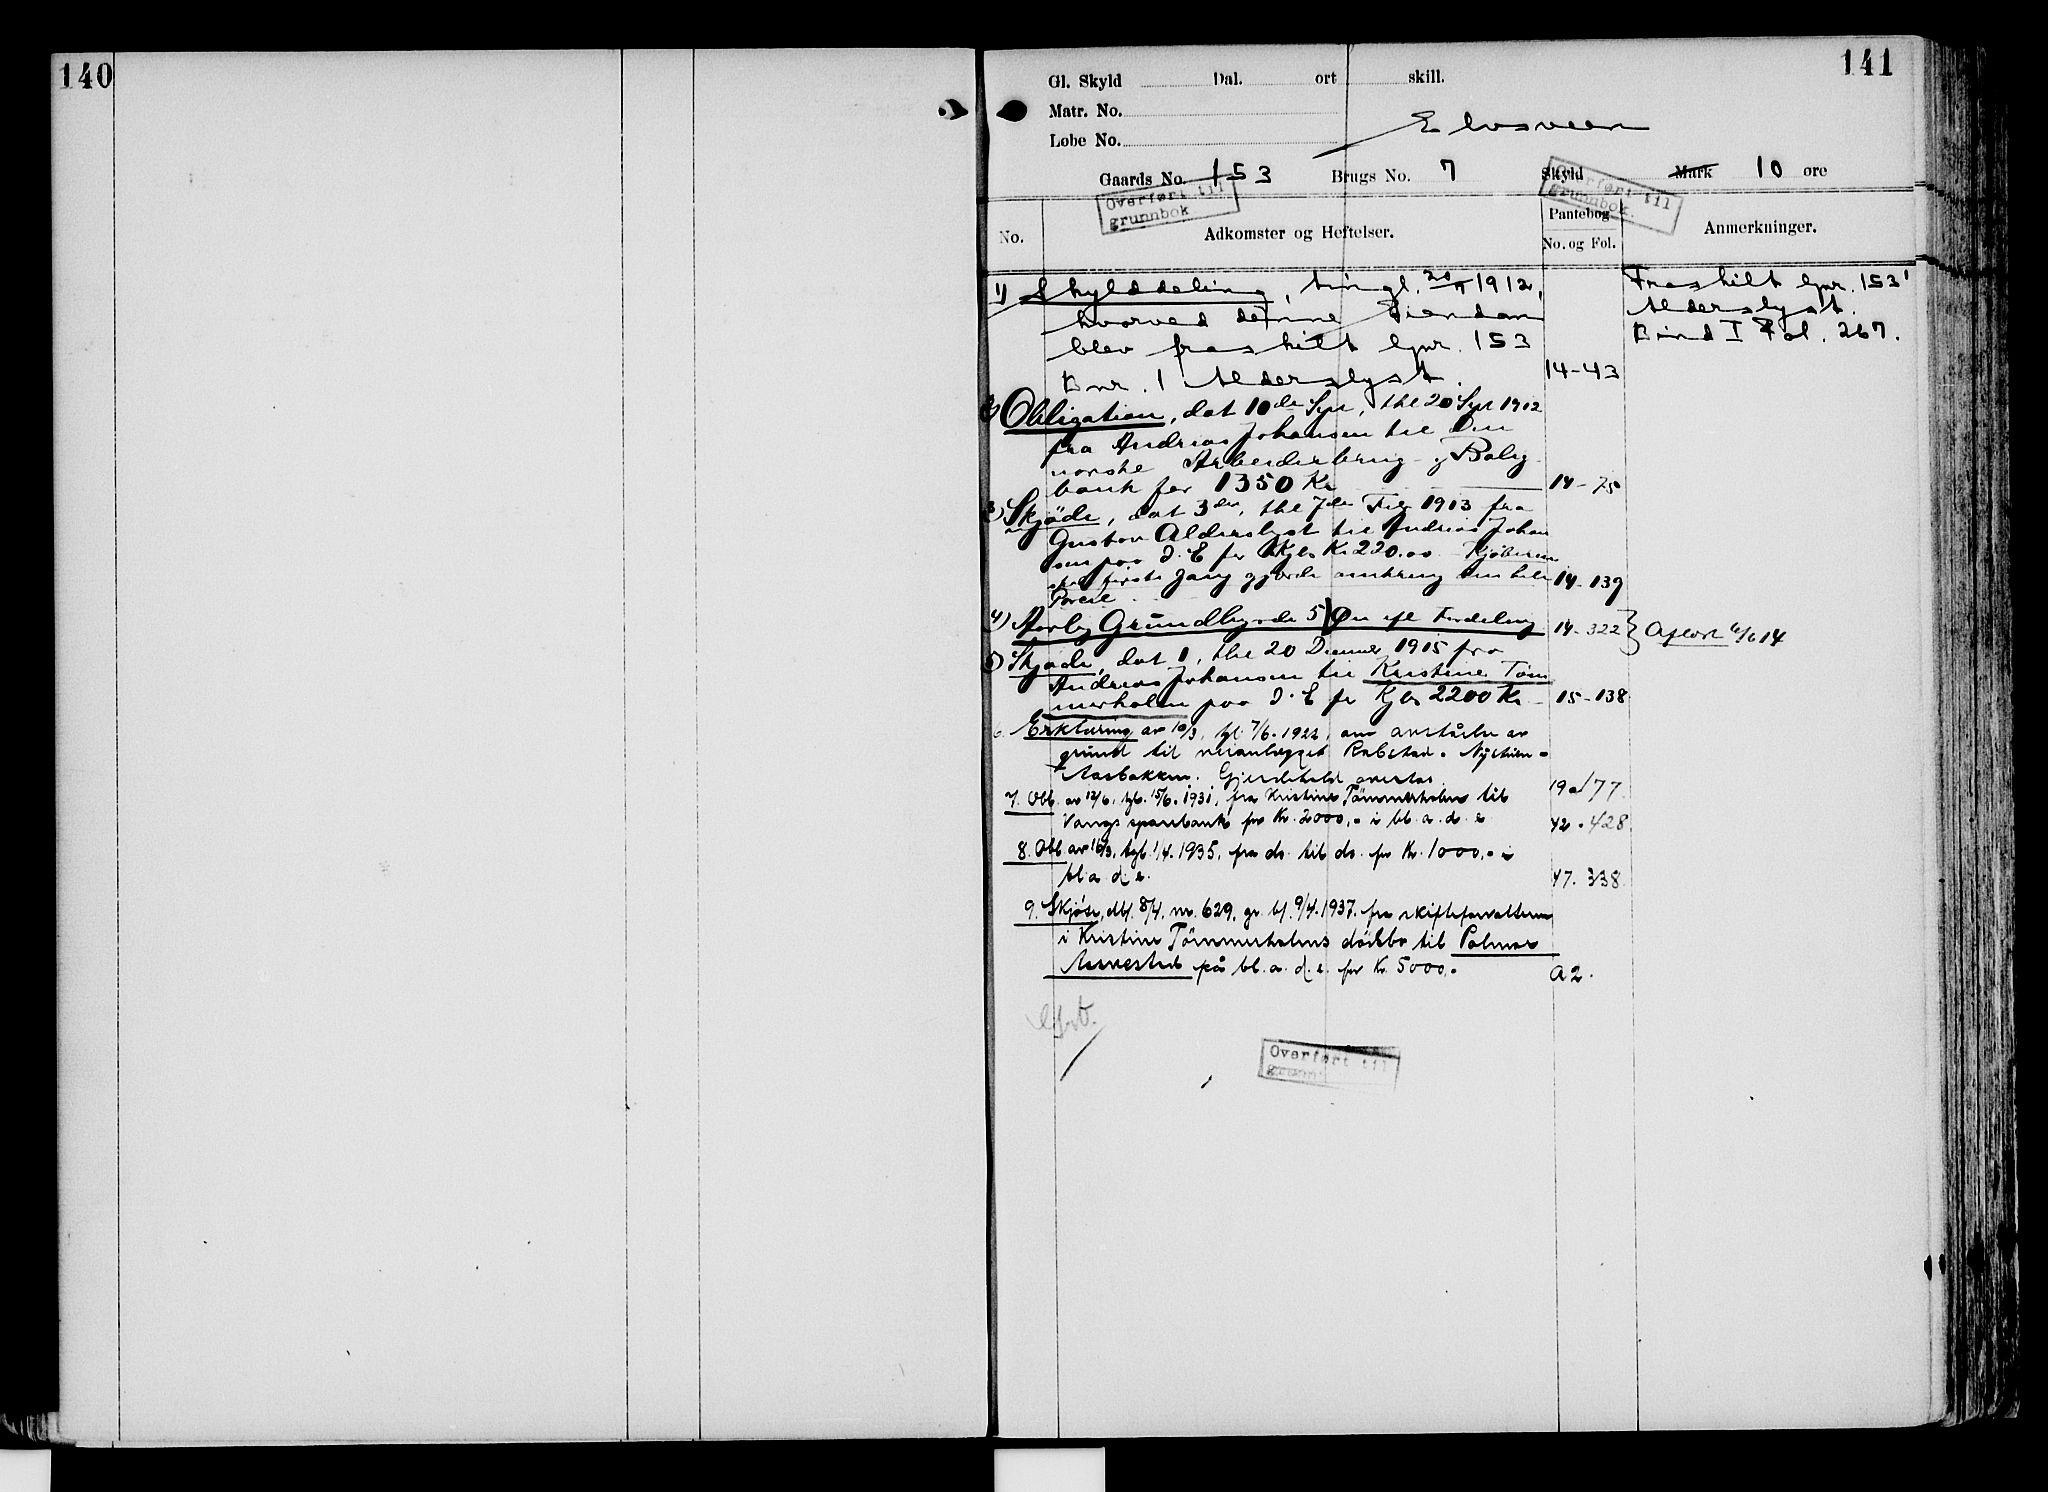 140
141
Gl. Skyld Dal. ort skill.
Matr. No.
Løbe No.
Elvsveen
Gaards No. 153 Brugs No. 7 Skyld Mark 10 øre
Overført til
grunnbok
Overført til
grunnbok.
No. Adkomster og Heftelser. Pantebog No. og Fol. Anmerkninger.
1) Skylddeling, tingl. 20/9 1912,
hvorved denne Eiendom
blev fraskilt gnr. 153
Bnr. 1 Alderslyst. 14-43
Fraskilt gnr. 153/1
Alderslyst.
Bind I Fol. 267.
2) Obligation, dat 10de Spr, thl 20 Spr 1912
fra Andreas Johansen til Den
norske Arbeiderbrug- og Bolig
bank for 1350 Kr 14-75
3) Skjöde, dat 3de, thl 7de 1913 fra
Gustav Alderslyst til Andreas Johan
sen paa D. E for Kjbs Kr 220.00 Kjöberen
skal første Gang gjærde omkring den hele
Parcel 14-139
4) Aarlig Grundbygsle 5 Øre efl Fordeling 14-322 } Aflæst 6/6 14
5) Skjøde, dat 1, thl 20 Decemb 1915 fra
Andreas Johansen til Kristine Töm
merholm paa D. E for Kjbs 2200 Kr 15-138
6. Erklæring av 10/3, tgl. 7/6. 1922, om avståelse av
grund til veianlegget Robstad - Nystuen -
Aasbakken. Gjerdehold avertas 19a/77
7. Obl. av 12/6, tgl. 15/6. 1931, fra Kristine Tömmerholm til
Vangs sparebank for Kr. 2000,- i bl. a. d. e. 42-428
8. Obl av 16/3, tgl. 1/4. 1935, fra ds. til ds. for Kr. 1000,- i
bl. a. d. e. 47. 338
9. Skjøte, dbf. 8/4, nr. 629, gr. bf. 9/4. 1937. fra skifteforvalteren
i Kristine Tömmerholms dödsbo til Palmar
Aarvestad på bl. a. d. e. for Kr. 5000,- A2.
Overført til